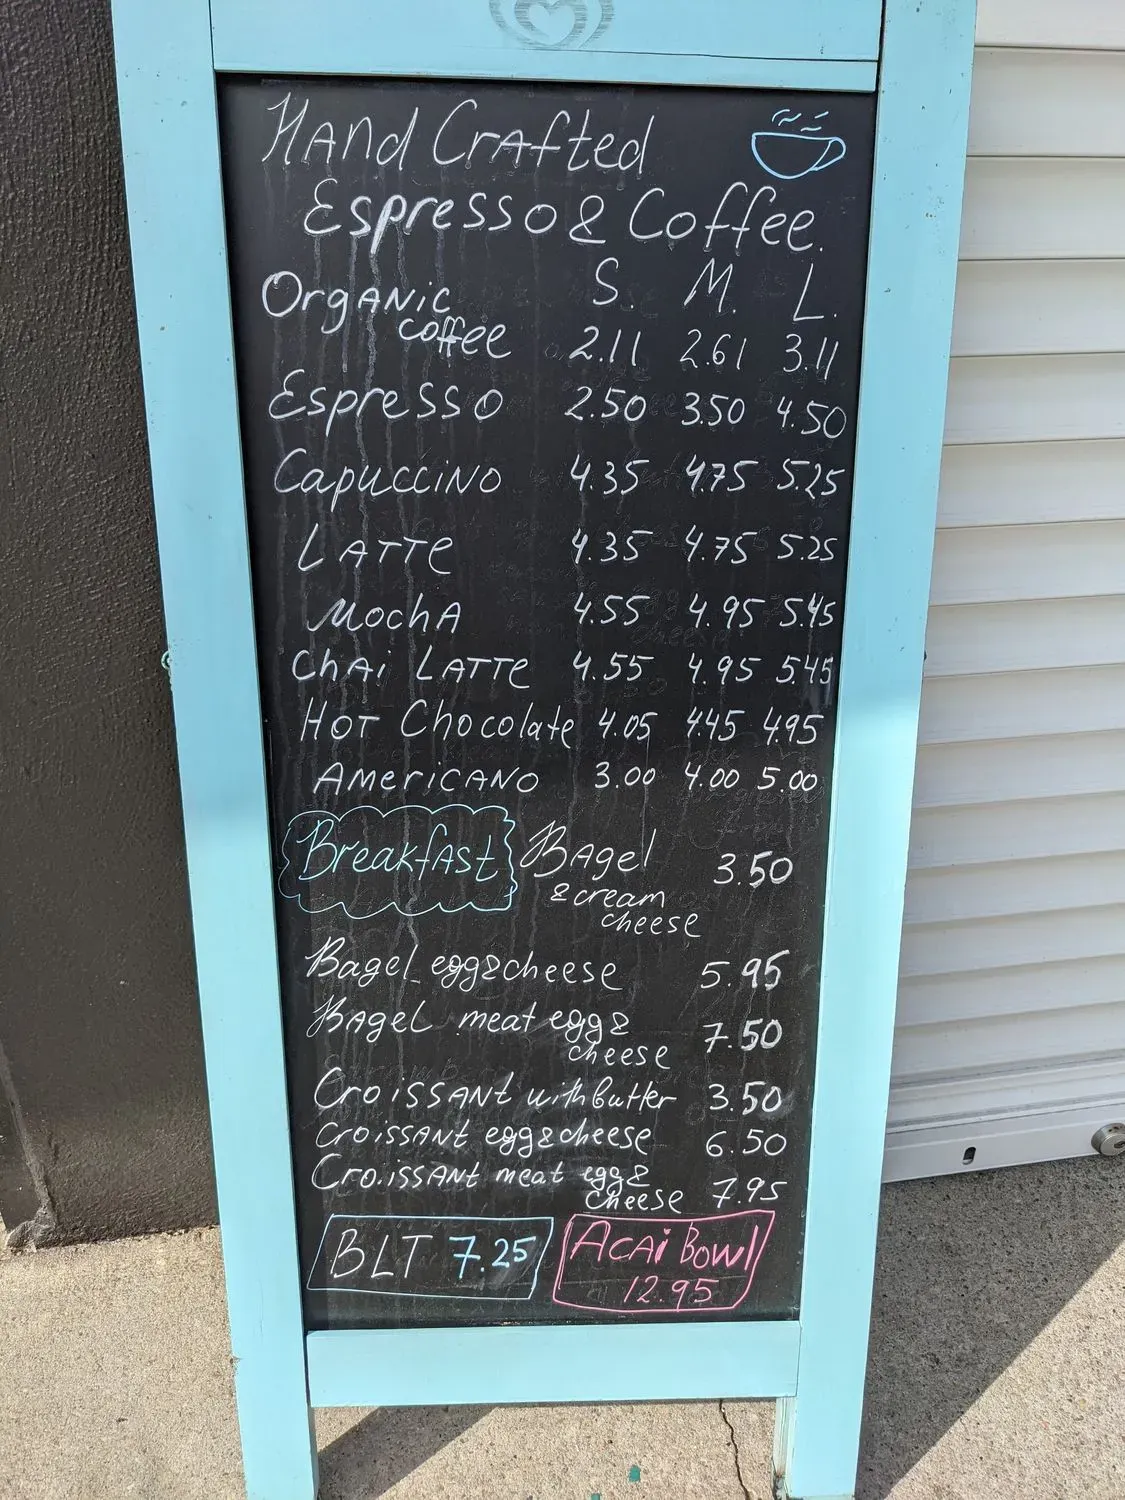 Hand Crafted
Espresso & Coffee.
S. M. L.
Organic
coffee 2.11 2.61 3.11
Espresso 2.50 3.50 4.50
Capuccino 4.35 4.75 5.25
Latte 4.35 4.75 5.25
Mocha 4.55 4.95 5.45
Chai Latte 4.55 4.95 5.45
Hot Chocolate 4.05 4.45 4.95
Americano 3.00 4.00 5.00
Breakfast Bagel 3.50
& cream
cheese
Bagel egg & cheese 5.95
Bagel meat egg & 7.50
cheese
Croissant with butter 3.50
Croissant egg & cheese 6.50
Croissant meat egg &
cheese 7.95
BLT 7.25 Acai Bowl
12.95